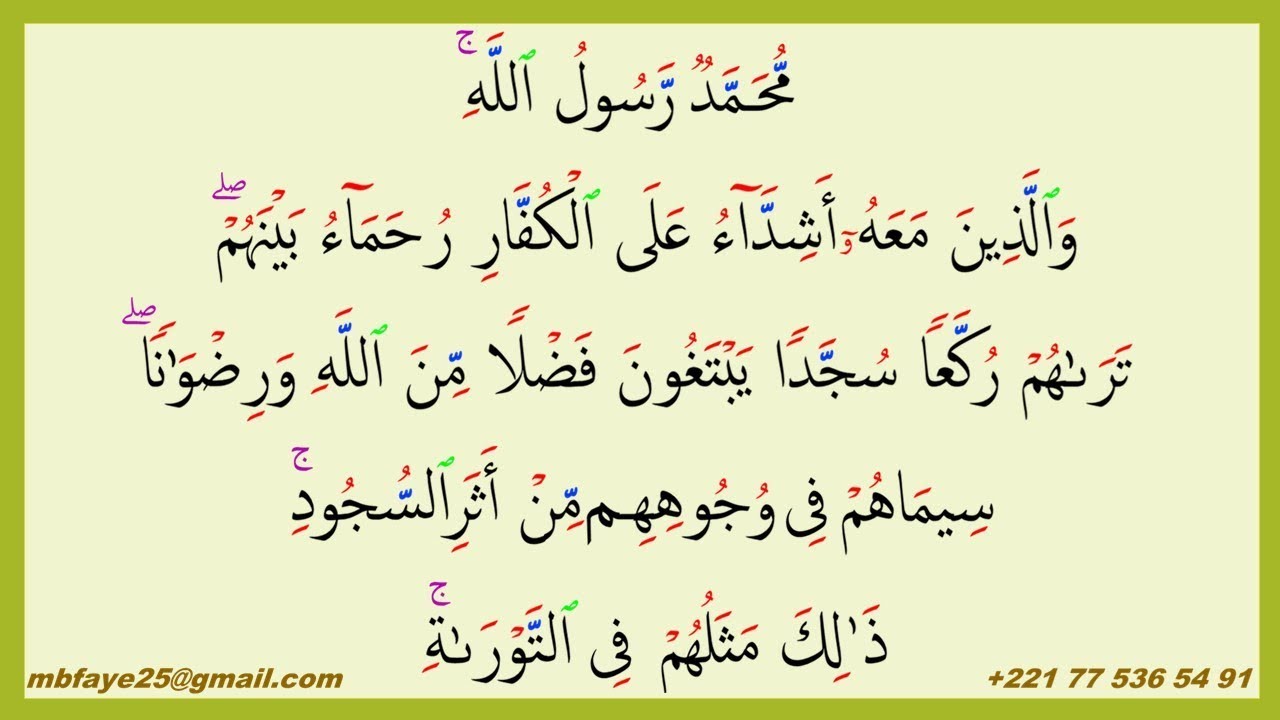 مُّحَمَّدٌ رَّسُولُ ٱللَّهِ ۚ
وَٱلَّذِينَ مَعَهُۥٓ أَشِدَّآءُ عَلَى ٱلْكُفَّارِ رُحَمَآءُ بَيْنَهُمْ ۖ
تَرَىٰهُمْ رُكَّعًا سُجَّدًا يَبْتَغُونَ فَضْلًا مِّنَ ٱللَّهِ وَرِضْوَٰنًا ۖ
سِيمَاهُمْ فِى وُجُوهِهِم مِّنْ أَثَرِ ٱلسُّجُودِ ۚ
ذَٰلِكَ مَثَلُهُمْ فِى ٱلتَّوْرَىٰةِ ۚ
mbfaye25@gmail.com
+221 77 536 54 91